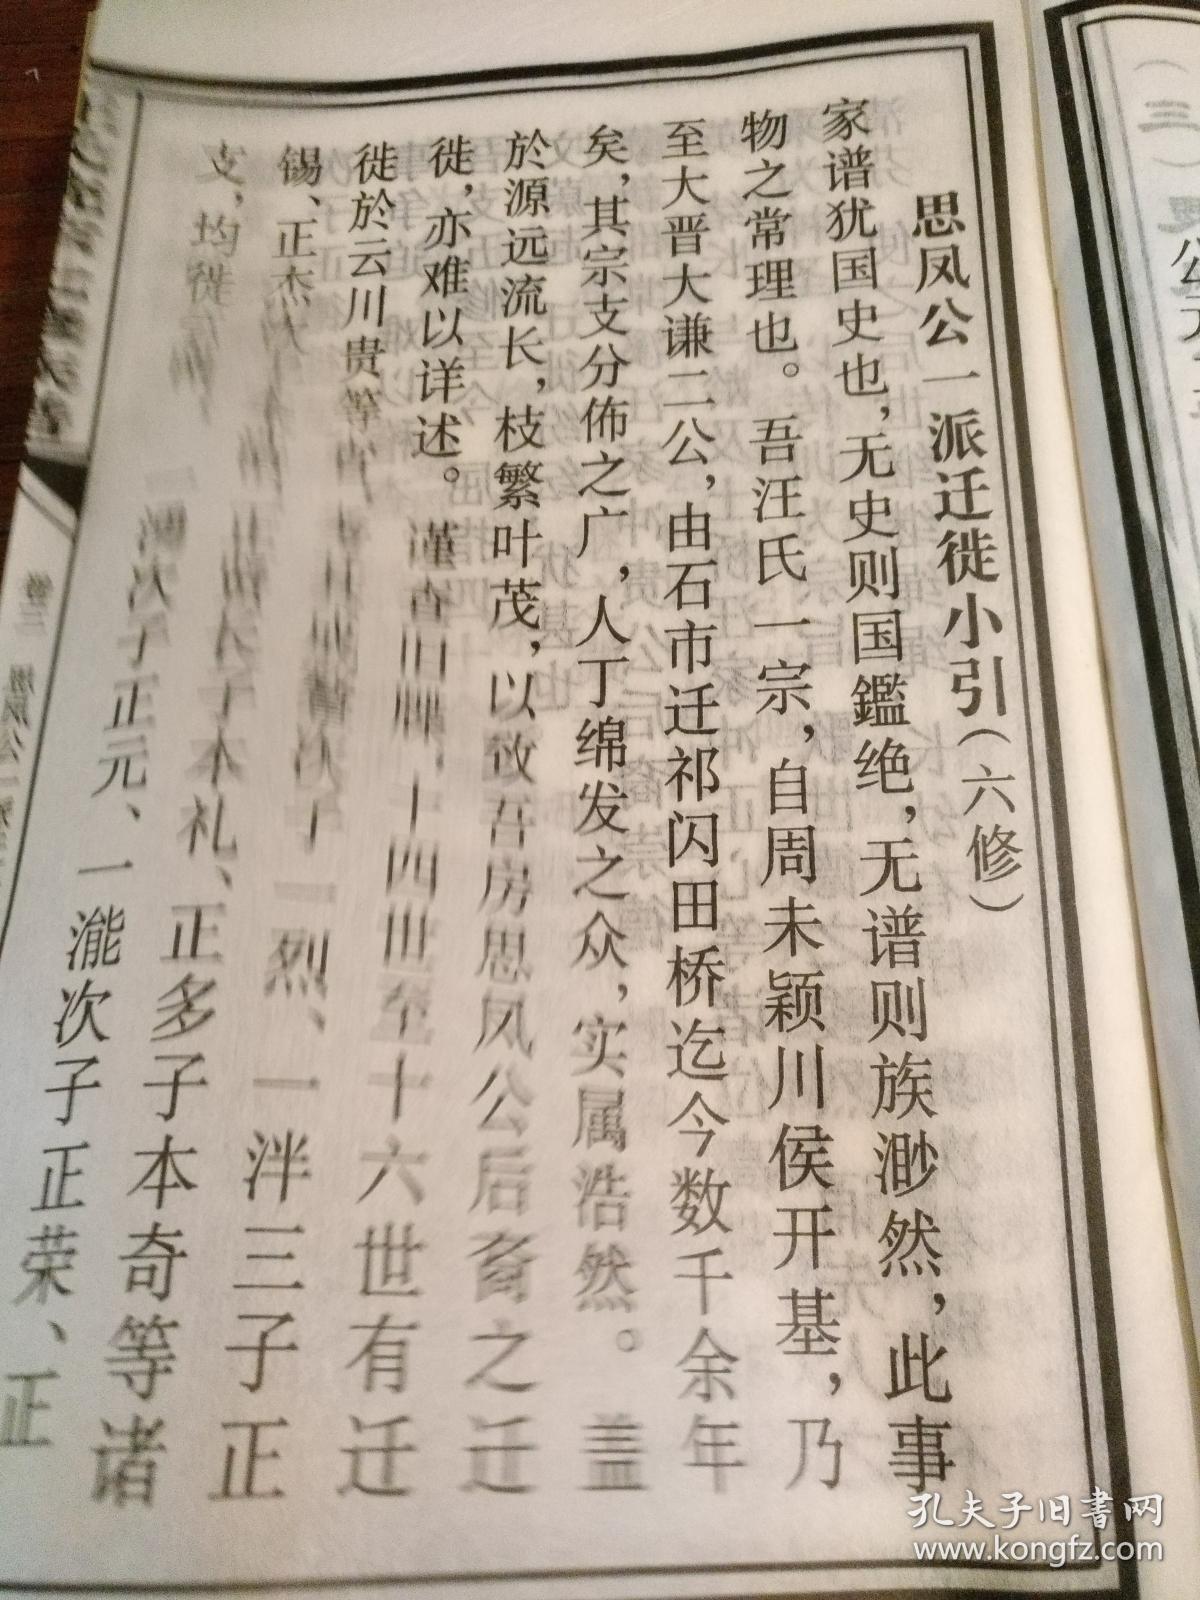 思凤公一派迁徙小引(六修)
家谱犹国史也,无史则国鑑绝,无谱则族渺然,此事
物之常理也。吾汪氏一宗,自周末颖川侯开基,乃
至大晋大谦二公,由石市迁祁闪田桥迄今数千余年
矣,其宗支分佈之广,人丁绵发之众,实属浩然。盖
於源远流长,枝繁叶茂,以致吾房思凤公后裔之迁
徙,亦难以详述。谨查旧牒,十四世至十六世有迁
徙於云川贵等 次子一烈、一泮三子正
锡、正杰 长子本礼、正多子本奇等诸
支,均徙 次子正元、一瀧次子正荣、正
卷三
孔夫子旧书网
www.kongfz.com